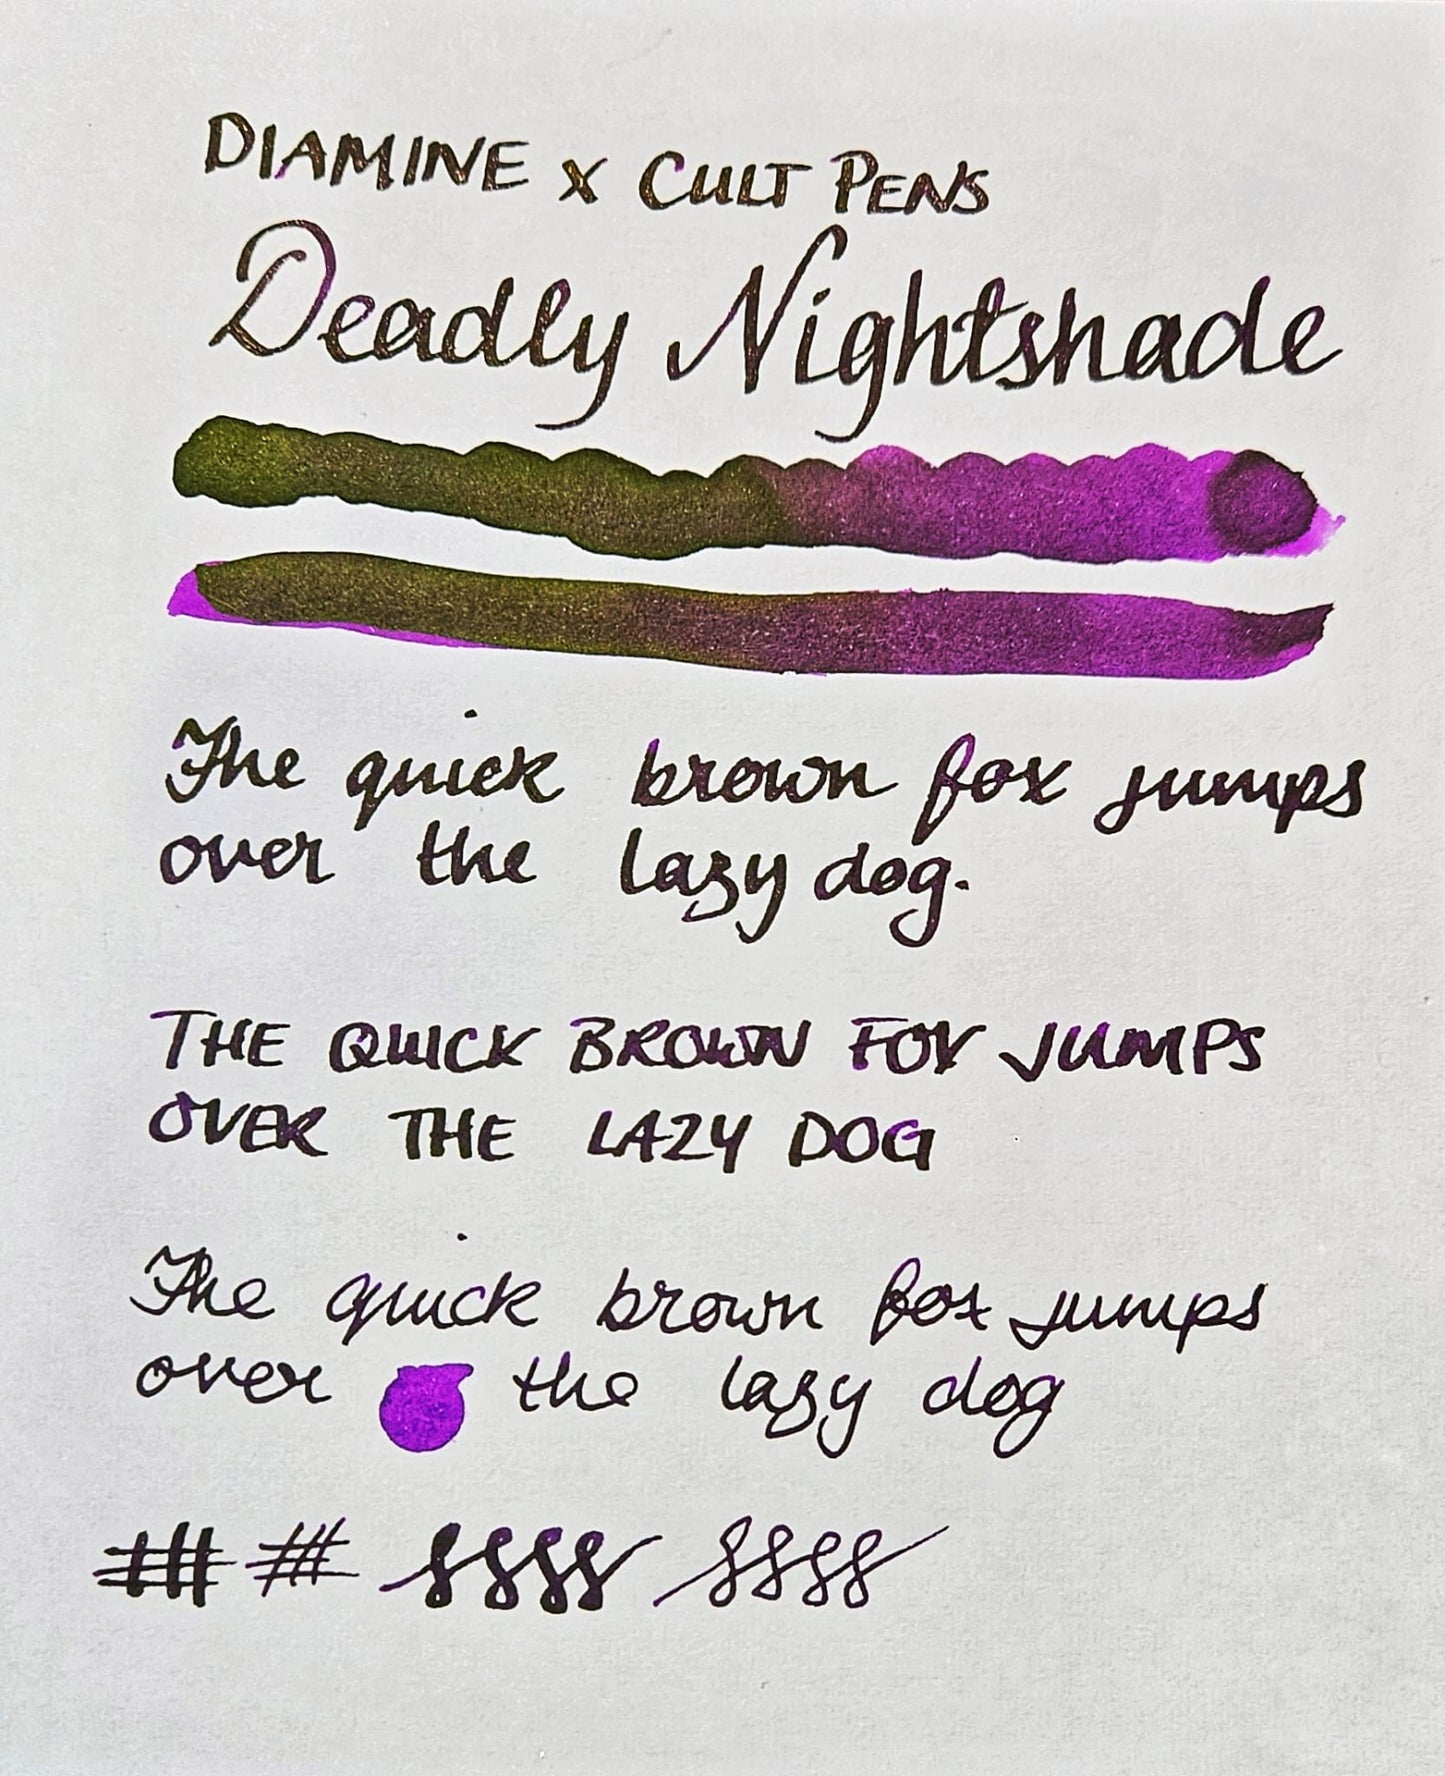 DIAMINE x CULT PENS
Deadly Nightshade
The quick brown fox jumps
over the lazy dog.
THE QUICK BROWN FOX JUMPS
OVER THE LAZY DOG
The quick brown fox jumps
over the lazy dog